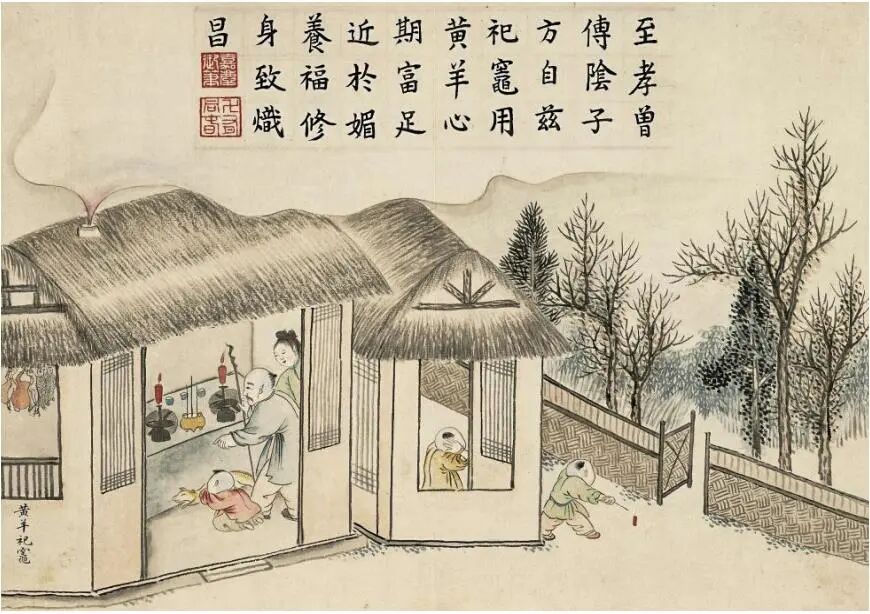 至孝曾
傳陰子
方自茲
祀竈用
黃羊心
期富足
近於媚
養福修
身致熾
昌
黃羊祀竈